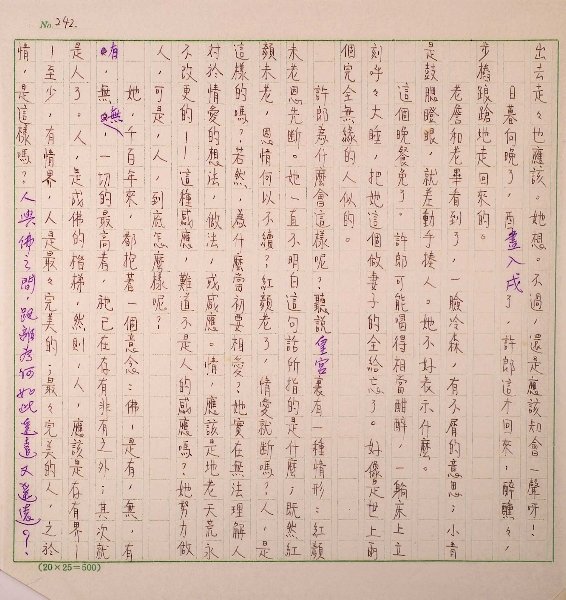 No. 242.
出去走々也應該。她想。不過，還是應該知會一聲呀！
日暮向晚了，酉盡入戌了，許郎這才回來，醉醺々，
步搖踉蹌地走回來的。
老詹和老畢看到了，一臉冷森，有不屑的意思；小青
是鼓腮瞪眼，就差動手揍人。她不好表示什麼。
這個晚餐免了。許郎可能喝得相當酣醉，一躺床上立
刻呼々大睡，把她這個做妻子的全給忘了。好像是世上兩
個完全無緣的人似的。
許郎為什麼會這樣呢？聽說皇宮裏有一種情形：紅顏
未老恩先斷。她一直不明白這句話所指的是什麼；既然紅
顏未老，恩情何以不續？紅顏老了，情愛就斷嗎？人，是
這樣的嗎？若然，為什麼當初要相愛？她實在無法理解人
對於情愛的想法，做法，或感應。情，應該是地老天荒永
不改更的——這種感應，難道不是人的感應嗎？她努力做
人，可是，人，到底怎麼樣呢？
她，千百年來，都抱著一個意念：佛，是有，無，有
唷，無無，一切的最高者，祂已在存有非有之外；其次就
是人了。人，是成佛的階梯，然則，人，應該是存有界—
—至少，有情界，人是最々完美的；最々完美的人，之於
情，是這樣嗎？人與佛之間，距離為何如此遙遠又遙遠？
(20×25=500)